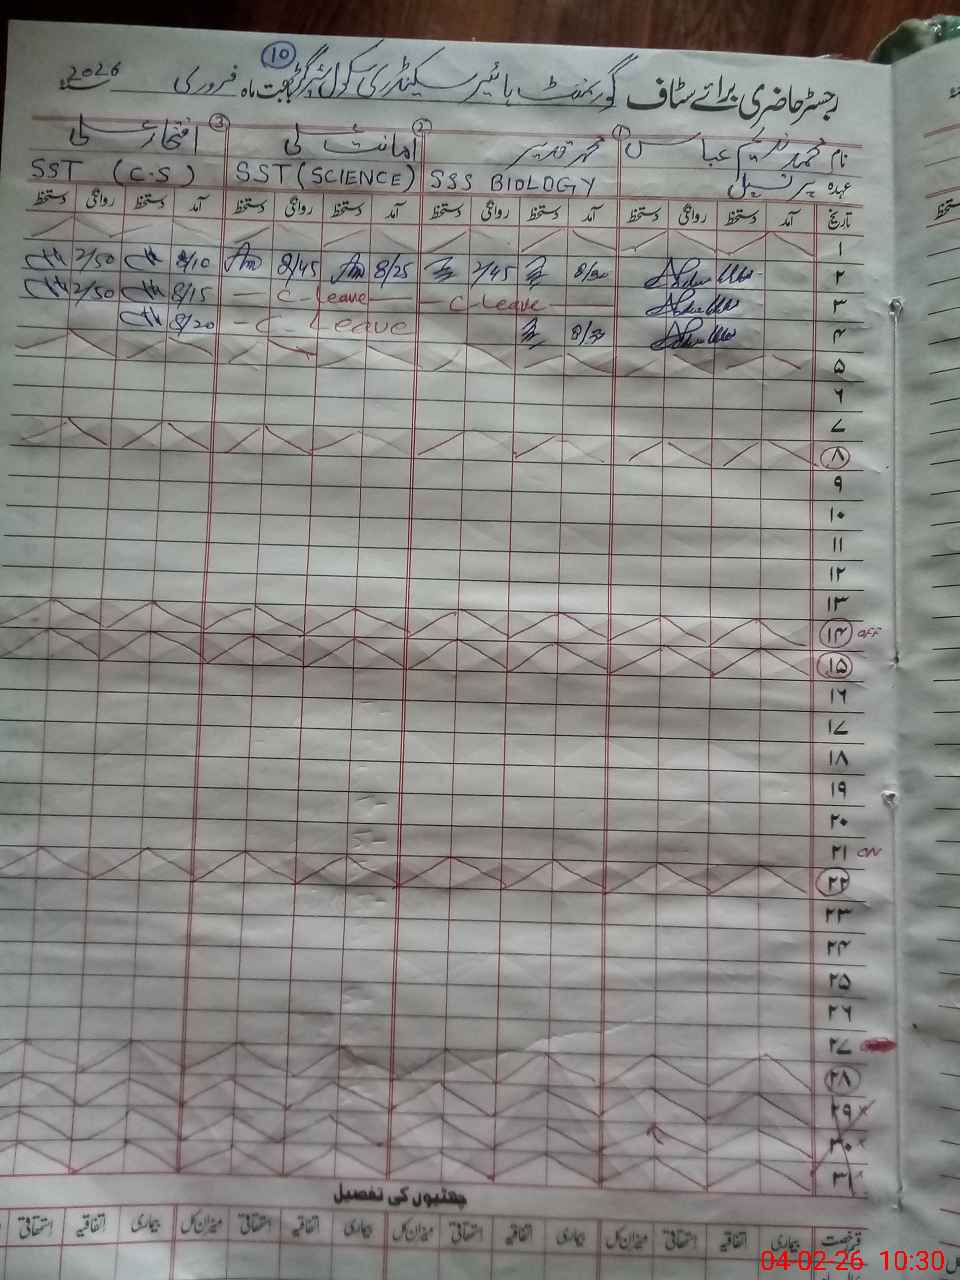 رجسٹر حاضری برائے سٹاف گورنمنٹ ہائیر سیکنڈری سکول بابت ماہ فروری 2026
10
نام محمد ندیم عباس ① محمد قدیر ② امانت علی ③ افتخار علی
عہدہ پرنسپل SSS BIOLOGY SST (SCIENCE) SST (C.S)
تاریخ آمد دستخط روانگی دستخط آمد دستخط روانگی دستخط آمد دستخط روانگی دستخط آمد دستخط روانگی دستخط
۱
۲ 8/30 2/45 8/25 2/45 8/10 2/50
۳ C Leave C- Leave 8/15 2/50
۴ 8/30 C- Leave 8/20
۵
۶
۷
۸
۹
۱۰
۱۱
۱۲
۱۳
۱۴ OFF
۱۵
۱۶
۱۷
۱۸
۱۹
۲۰
۲۱ ON
۲۲
۲۳
۲۴
۲۵
۲۶
۲۷
۲۸
۲۹ x
۳۰ x
۳۱
چھٹیوں کی تفصیل
قسم رخصت بیماری اتفاقیہ استحقاقی میزان کل بیماری اتفاقیہ استحقاقی میزان کل بیماری اتفاقیہ استحقاقی میزان کل بیماری اتفاقیہ استحقاقی
04-02-26 10:30